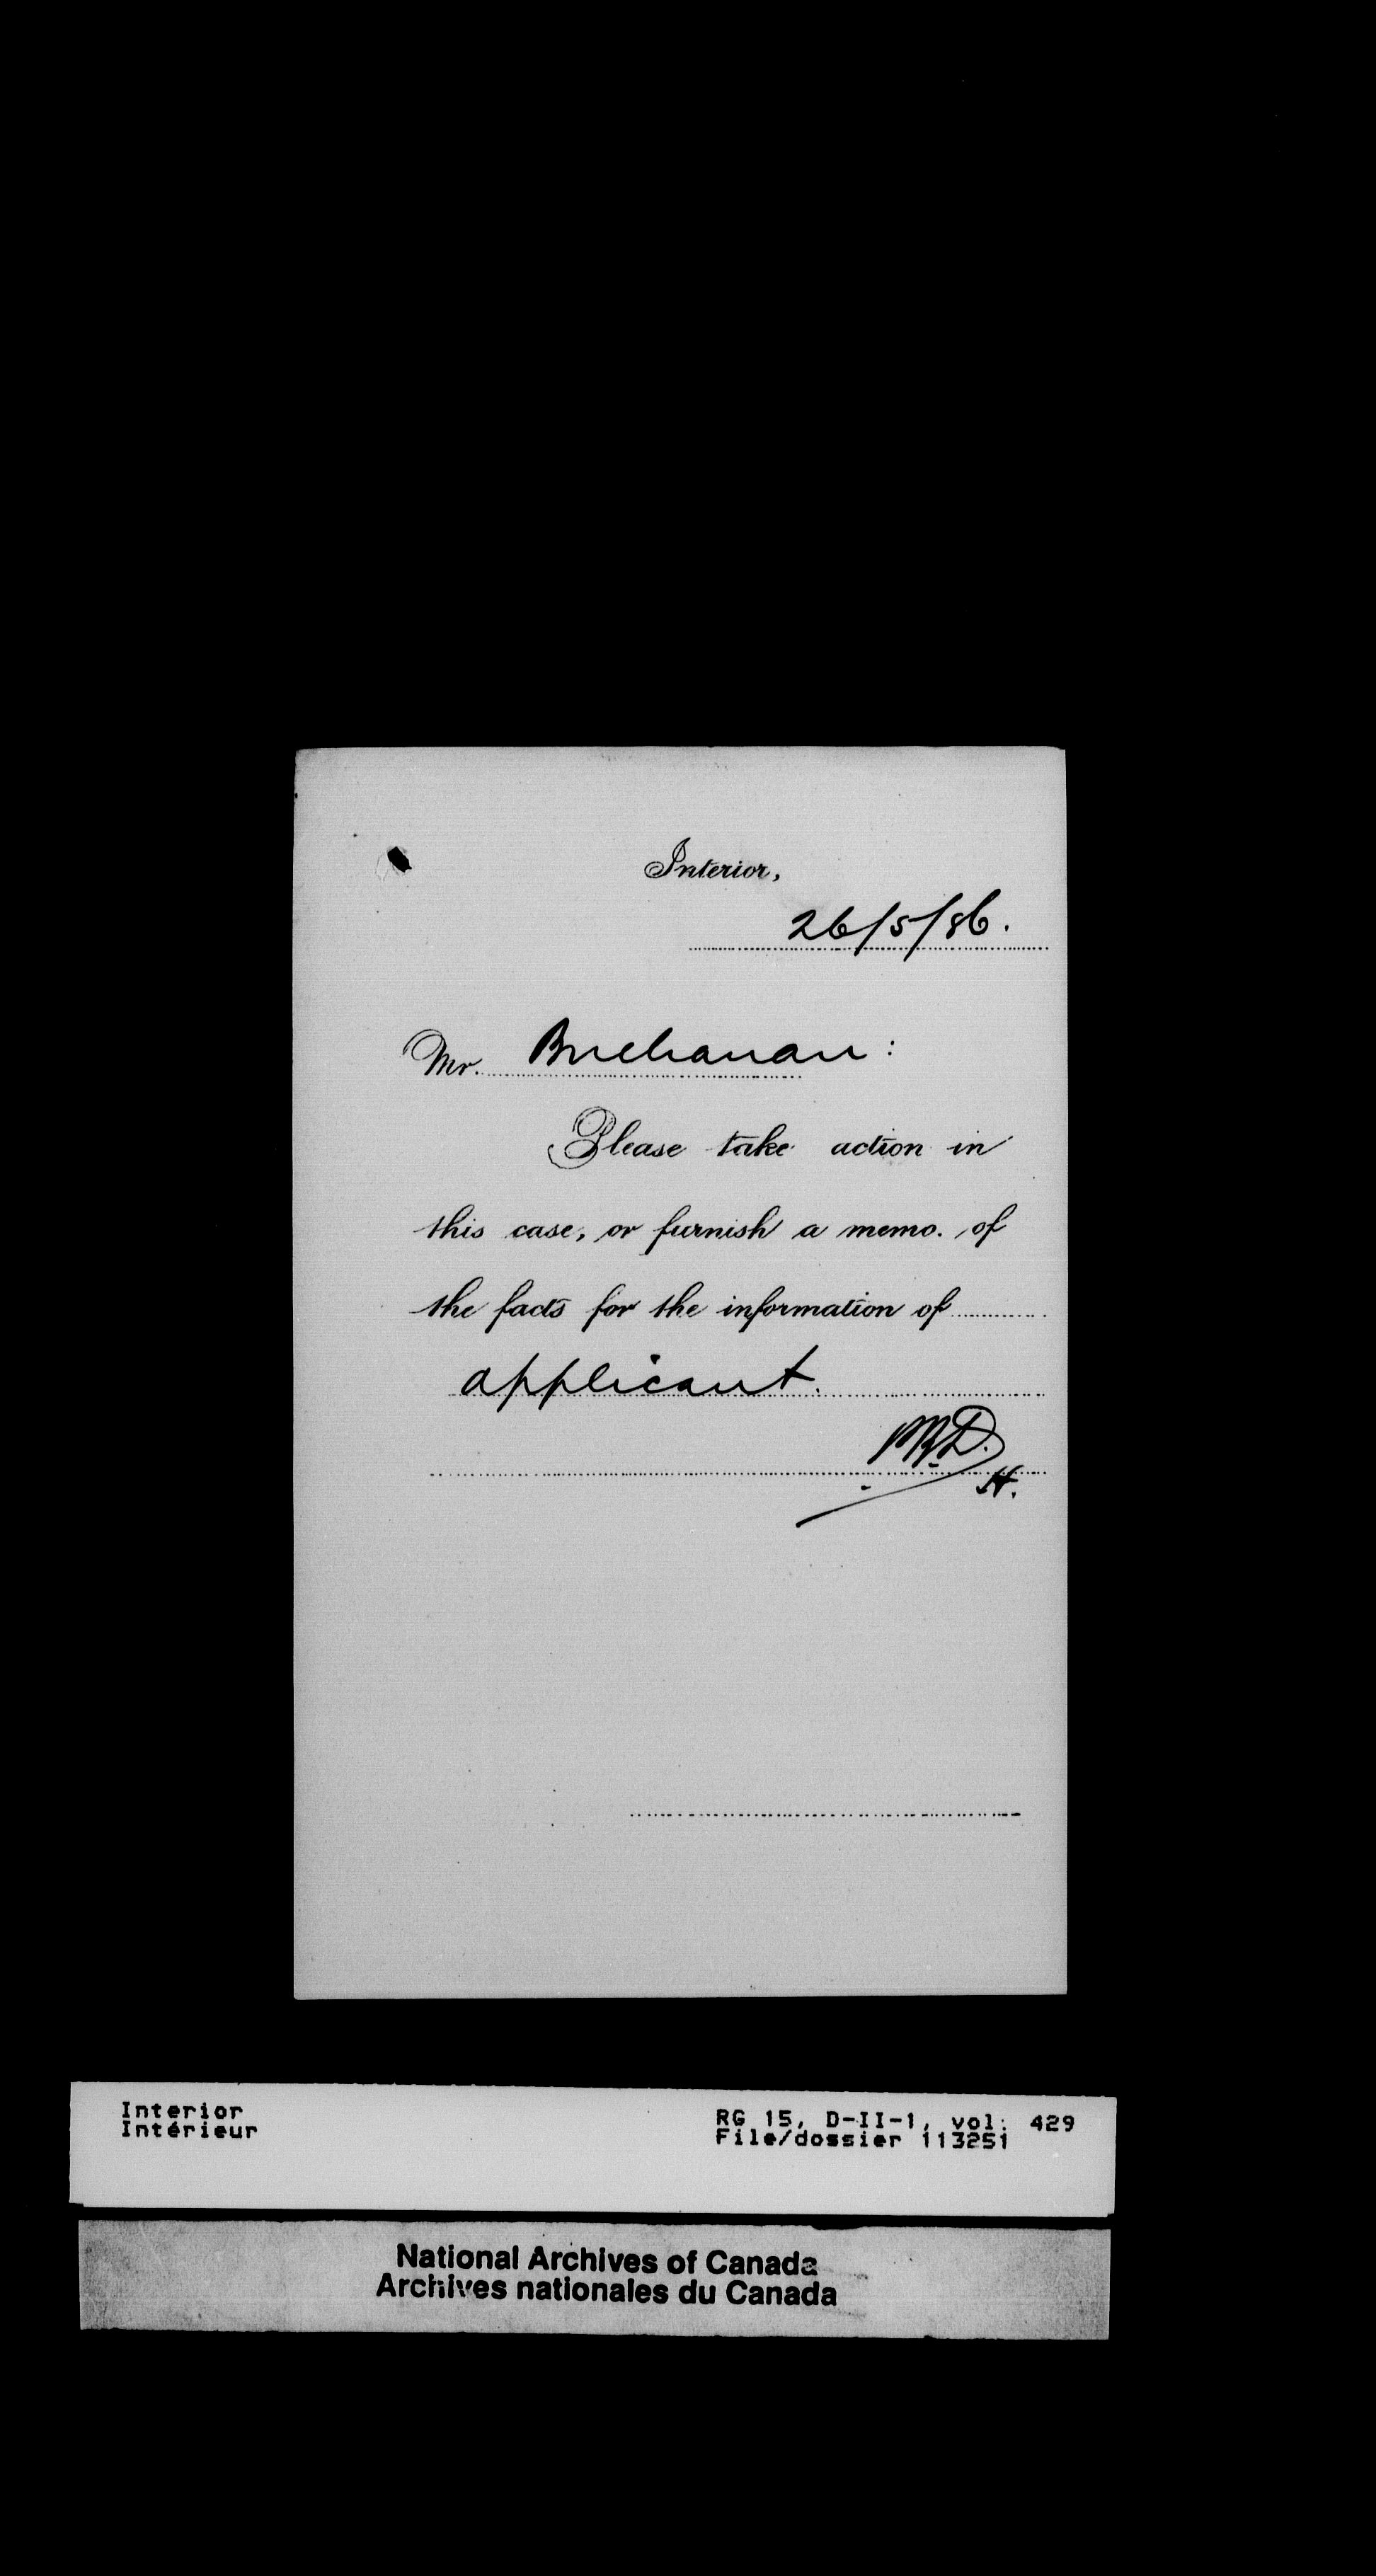 Interior,
26/5/86.
Mr. Buchanan:
Please take action in
this case, or furnish a memo. of
the facts for the information of
applicant.
H.
Interior
Intérieur
RG 15, D-II-1, vol. 429
File/dossier 113251
National Archives of Canada
Archives nationales du Canada